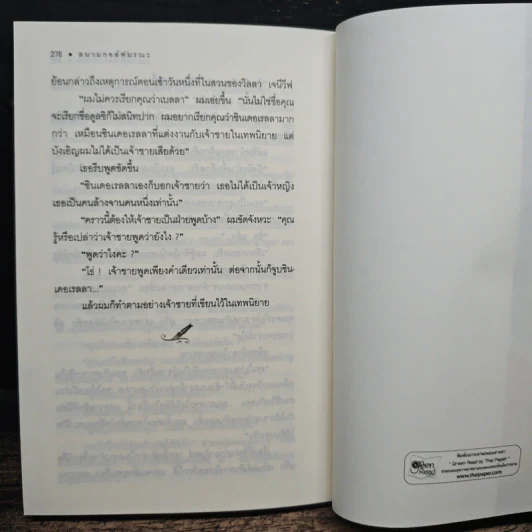 276 • สนามกอล์ฟมรณะ
ย้อนกล่าวถึงเหตุการณ์ตอนเช้าวันหนึ่งที่ในสวนของวิลลา เจนีวีฟ
"ผมไม่ควรเรียกคุณว่าเบลลา" ผมเอ่ยขึ้น "นั่นไม่ใช่ชื่อคุณ
จะเรียกชื่อดูลซีก็ไม่สนิทปาก ผมอยากเรียกคุณว่าซินเดอเรลลามาก
กว่า เหมือนซินเดอเรลลาที่แต่งงานกับเจ้าชายในเทพนิยาย แต่
บังเอิญผมไม่ได้เป็นเจ้าชายเสียด้วย"
เธอรีบพูดขัดขึ้น
"ซินเดอเรลลาเองก็บอกเจ้าชายว่า เธอไม่ได้เป็นเจ้าหญิง
เธอเป็นคนล้างจานคนหนึ่งเท่านั้น"
"คราวนี้ต้องให้เจ้าชายเป็นฝ่ายพูดบ้าง" ผมขัดจังหวะ "คุณ
รู้หรือเปล่าว่าเจ้าชายพูดว่ายังไง ?"
"พูดว่าไงคะ ?"
"โธ่ ! เจ้าชายพูดเพียงคำเดียวเท่านั้น ต่อจากนั้นก็จูบซิน-
เดอเรลลา..."
แล้วผมก็ทำตามอย่างเจ้าชายที่เขียนไว้ในเทพนิยาย
green
" Green Read by Thai Paper "
www.thaipaper.com